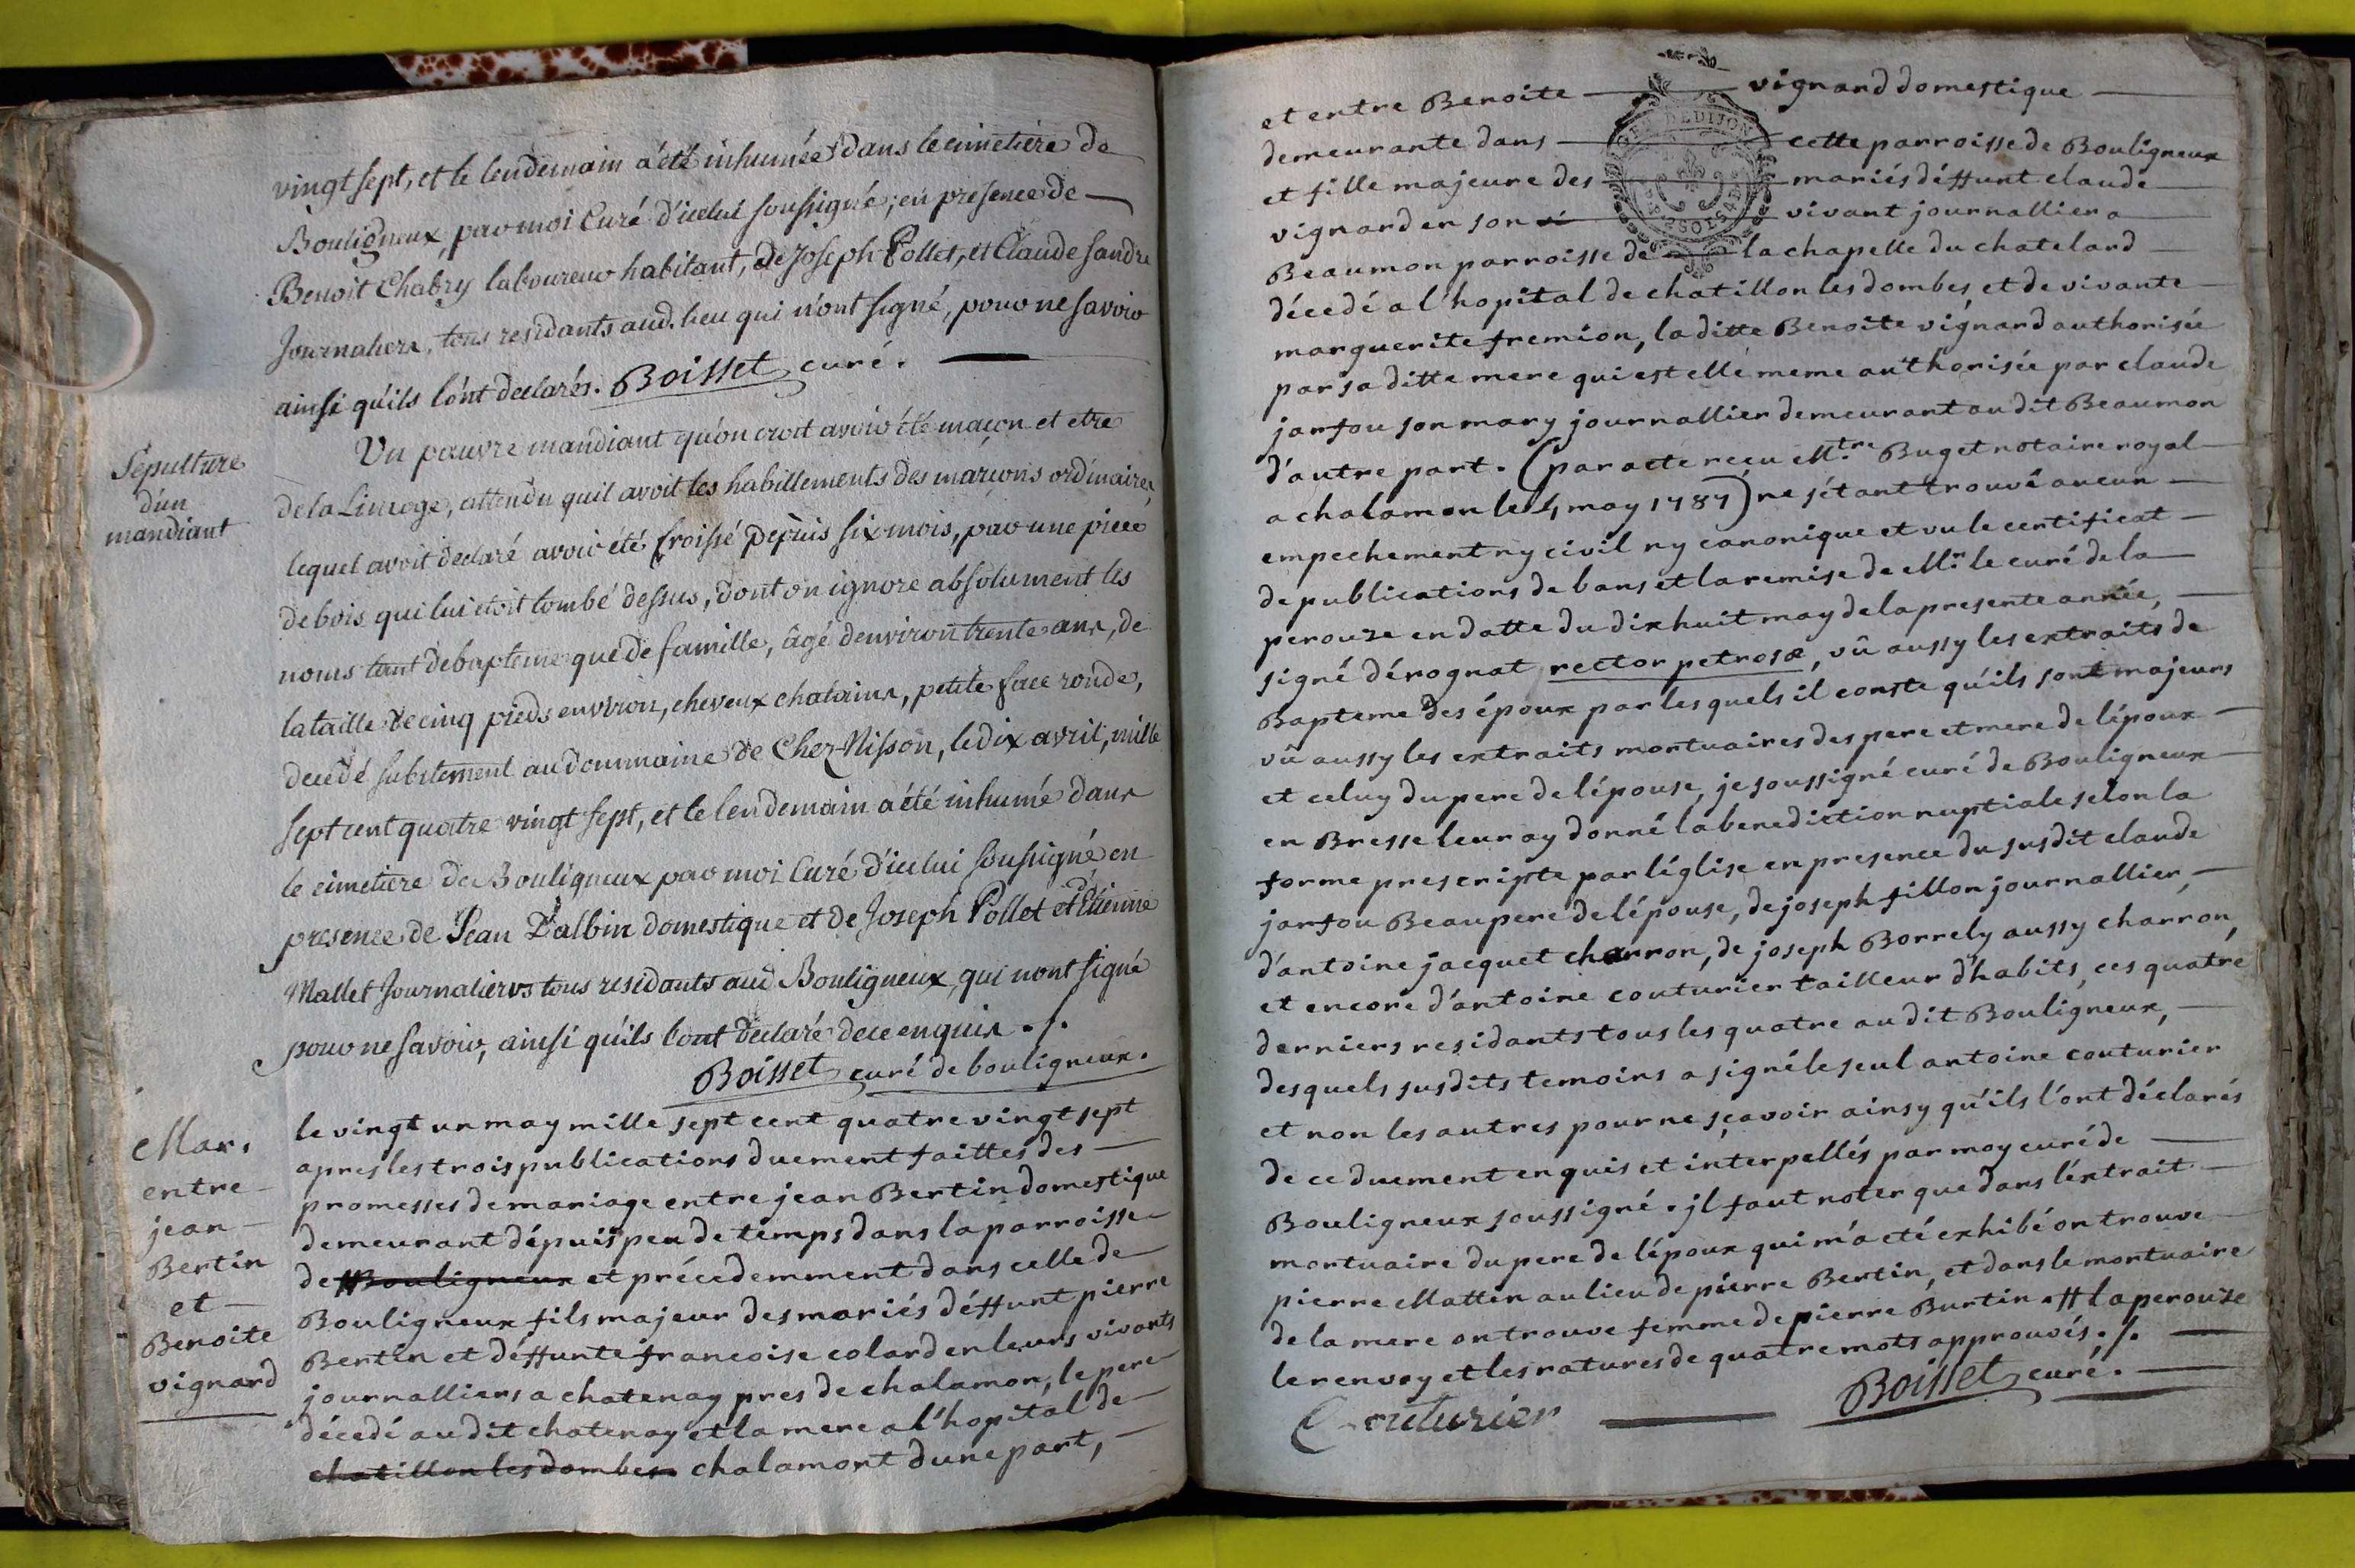 vingt sept, et le lendemain a été inhumée dans le cimetiére de
Bouligneux, par moi Curé d'icelui soussigné; en presence de
Benoit Chabry laboureur habitant, de Joseph Pollet, et Claude Sandre
Journaliers, tous residants aud. lieu qui n'ont signé, pour ne savoir
ainsi qu'ils l'ont declarés. Boisset curé.
Sépulture
d'un
mandiant
Un pauvre mandiant qu'on croit avoir été maçon et etre
de la Limoge, attendu quil avoit les habillements des marçons ordinaires,
lequel avoit declaré avoir été froissé depuis six mois, par une piece
de bois qui lui etoit tombé dessus, dont on ignore absolument les
noms tant de bapteme que de famille, âgé denviron trente ans, de
la taille de cinq pieds environ, cheveux chatains, petite face ronde,
decedé subitement au dommaine de Chez-Nisson, le dix avril, mille
sept cent quatre vingt sept, et le lendemain a été inhumé dans
le cimetiere de Bouligneux par moi Curé d'icelui soussigné en
presence de Jean Dalbin domestique et de Joseph Pollet et d'Etienne
Mallet Journaliers tous residants aud Bouligneux, qui nont signé
pour ne savoir, ainsi qu'ils l'ont declaré de ce enquis ./.
Boisset curé de bouligneux.
Mar.
entre
jean
Bertin
et
Benoite
vignard
le vingt un may mille sept cent quatre vingt sept
apres les trois publications duement faittes des
promesses de mariage entre jean Bertin domestique
demeurant dépuis peu de temps dans la parroisse
de # Bouligneux et précedemment dans celle de
Bouligneux fils majeur des mariés déffunt pierre
Bertin et déffunte francoise colard en leurs vivants
journalliers a chatenay pres de chalamon, le pere
décedé au dit chatenay et la mere a l'hopital de
chatillon les dombes chalamont dune part,
et entre Benoite vignard domestique
demeurante dans cette parroisse de Bouligneux
et fille majeure des mariés déffunt claude
vignard en son vi vivant journallier a
Beaumon parroisse de la chapelle du chatelard
décedé a l'hopital de chatillon les dombes, et de vivante
marguerite fremion, la ditte Benoite vignard authorisée
par sa ditte mere qui est elle meme authorisée par claude
jarfou son mary journallier demeurant au dit Beaumon
d'autre part. (par acte recu Mtre Buget notaire royal
a chalamon le 4 may 1787) ne s'étant trouvé aucun
empechement ny civil ny canonique et vu le certificat
de publications de bans et la remise de Mr le curé de la
perouze en datte du dix huit may de la presente année,
signé dérognat rector petrosæ, vû aussy les extraits de
Bapteme des époux par lesquels il conste qu'ils sont majeurs
vû aussy les extraits mortuaires des pere et mere de l'époux
et celuy du pere de l'épouse, je soussigné curé de Bouligneux
en Bresse leur ay donné la benediction nuptiale selon la
forme prescripte par l'église en presence du susdit claude
jarfou Beaupere de l'épouse, de joseph fillon journallier,
d'antoine jacquet charron, de joseph Borrely aussy charron,
et encore d'antoine couturier tailleur d'habits, ces quatre
derniers residants tous les quatre au dit Bouligneux,
desquels susdits temoins a signé le seul antoine couturier
et non les autres pour ne sçavoir ainsy qu'ils l'ont déclarés
de ce duement enquis et interpellés par moy curé de
Bouligneux soussigné. jl faut noter que dans l'extrait
mortuaire du pere de l'époux qui m'a eté exhibé on trouve
pierre Matten au lieu de pierre Bertin, et dans le mortuaire
de la mere on trouve femme de pierre Burtin # la perouze
le renvoy et les ratures de quatre mots approuvés ./.
Boisset curé.
Couturier
GEN. DE DIJON
2 SOLS 4 D